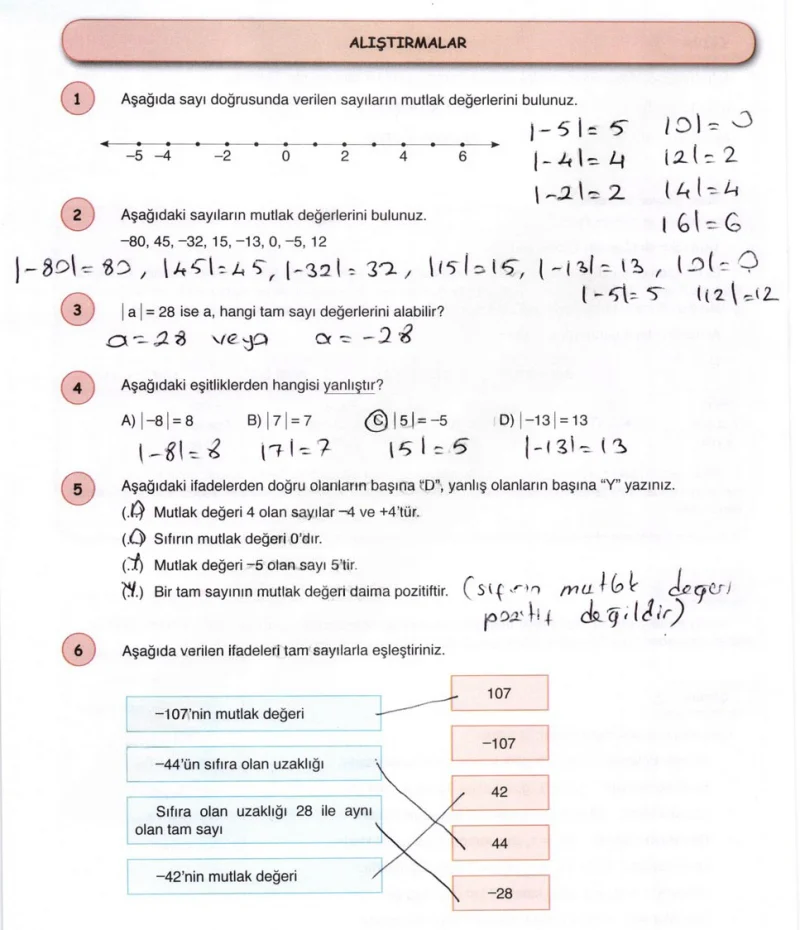 ALIŞTIRMALAR
1 Aşağıda sayı doğrusunda verilen sayıların mutlak değerlerini bulunuz.
-5 -4 -2 0 2 4 6
|-5|= 5 |0|= 0
|-4|= 4 |2|= 2
|-2|= 2 |4|=4
|6|=6
2 Aşağıdaki sayıların mutlak değerlerini bulunuz.
-80, 45, -32, 15, -13, 0, -5, 12
|-80|= 80, |45|=45, |-32|= 32, |15|=15, |-13|= 13, |0|= 0
|-5|= 5 |12|=12
3 |a|= 28 ise a, hangi tam sayı değerlerini alabilir?
a=28 veya a = -28
4 Aşağıdaki eşitliklerden hangisi yanlıştır?
A) |-8|= 8 B) |7|= 7 C) |5|= -5 D) |-13|= 13
|-8|= 8 |7|= 7 |5|= 5 |-13|= 13
5 Aşağıdaki ifadelerden doğru olanların başına "D", yanlış olanların başına "Y" yazınız.
(.D) Mutlak değeri 4 olan sayılar -4 ve +4'tür.
(.D) Sıfırın mutlak değeri 0'dır.
Mutlak değeri -5 olan sayı 5'tir.
(Y.) Bir tam sayının mutlak değeri daima pozitiftir. (sıfırın mutlak değeri
pozitif değildir)
6 Aşağıda verilen ifadeleri tam sayılarla eşleştiriniz.
-107'nin mutlak değeri
-44'ün sıfıra olan uzaklığı
Sıfıra olan uzaklığı 28 ile aynı
olan tam sayı
-42'nin mutlak değeri
107
-107
42
44
-28